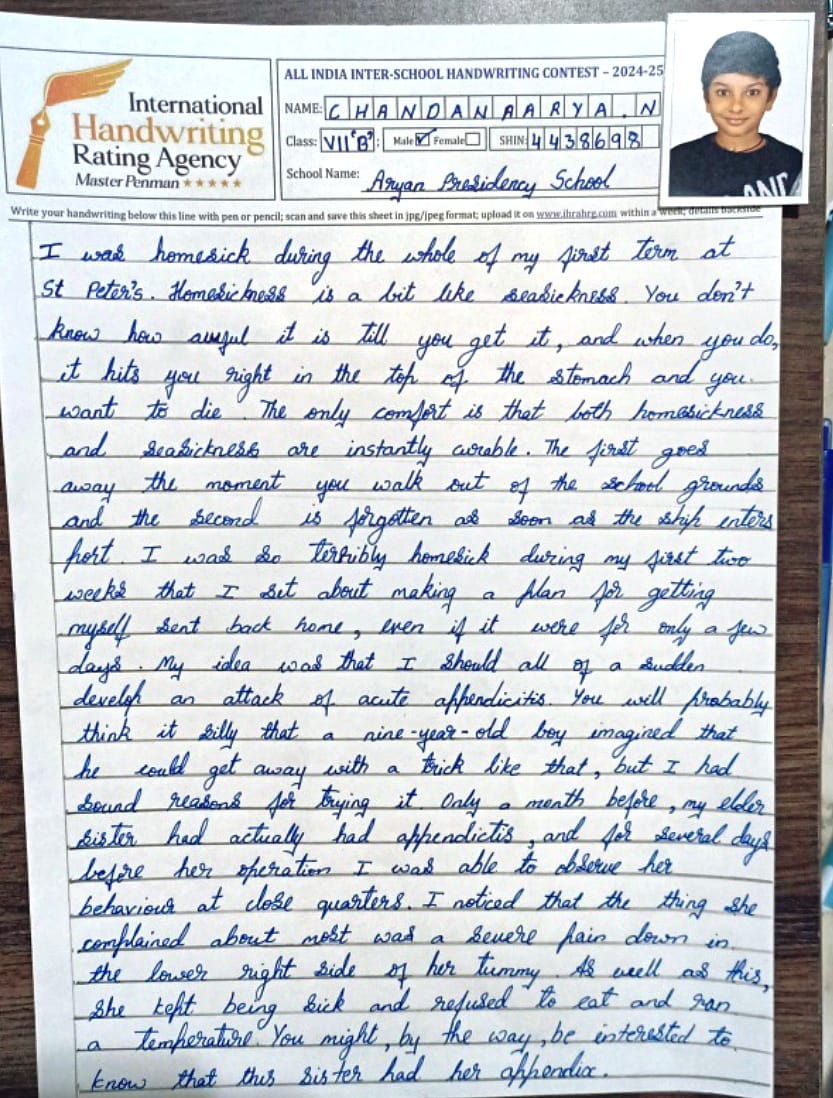 International
Handwriting
Rating Agency
Master Penman
ALL INDIA INTER-SCHOOL HANDWRITING CONTEST – 2024-25
NAME: CHANDAN AARYA. N
Class: VII 'B' Male Female SHIN: 4438698
School Name: Aryan Presidency School
Write your handwriting below this line with pen or pencil; scan and save this sheet in jpg/jpeg format; upload it on www.ihrahrg.com within a week; details backside
I was homesick during the whole of my first term at
St Peter's. Homesickness is a bit like seasickness. You don't
know how awful it is till you get it, and when you do,
it hits you right in the top of the stomach and you
want to die. The only comfort is that both homesickness
and seasickness are instantly curable. The first goes
away the moment you walk out of the school grounds
and the second is forgotten as soon as the ship enters
port. I was so terribly homesick during my first two
weeks that I set about making a plan for getting
myself sent back home, even if it were for only a few
days. My idea was that I should all of a sudden
develop an attack of acute appendicitis. You will probably
think it silly that a nine-year-old boy imagined that
he could get away with a trick like that, but I had
sound reasons for trying it. Only a month before, my elder
sister had actually had appendictis, and for several days
before her operation I was able to observe her
behaviour at close quarters. I noticed that the thing she
complained about most was a severe pain down in
the lower right side of her tummy. As well as this,
she kept being sick and refused to eat and ran
a temperature. You might, by the way, be interested to
know that this sister had her appendix.